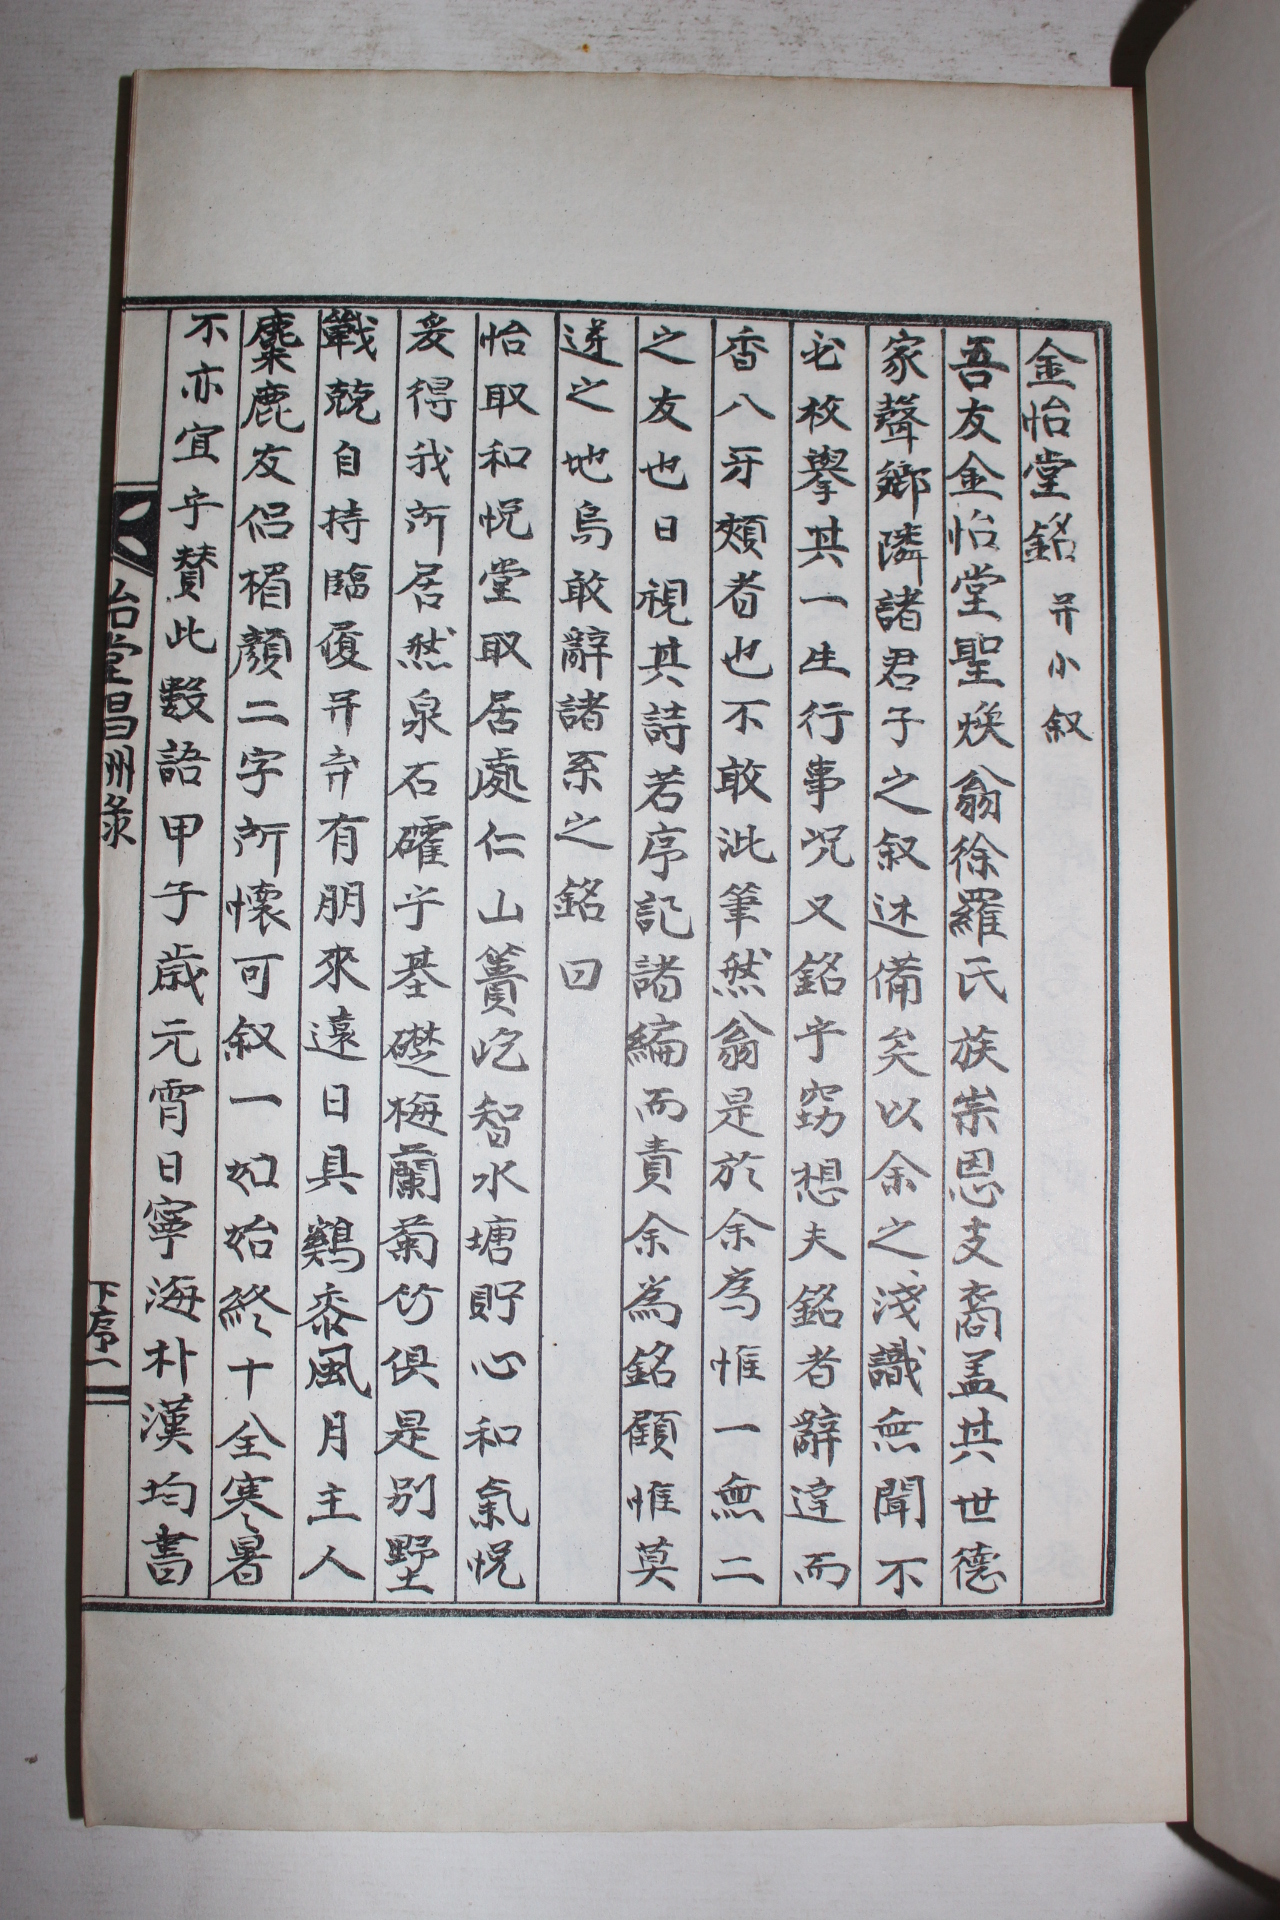 金怡堂銘 并小叙
吾友金怡堂聖煥翁徐羅氏族崇恩支裔盖其世德
家聲鄉隣諸君子之叙述備矣以余之淺識無聞不
必枚擧其一生行事况又銘乎窃想夫銘者辭達而
香人牙頰者也不敢泚筆然翁是於余為惟一無二
之友也日視其詩若序記諸編而責余為銘顧惟莫
逆之地烏敢辭諸系之銘曰
怡取和悅堂取居處仁山簣屹智水塘貯心和氣悅
爰得我所居然泉石確乎基礎梅蘭菊竹俱是別墅
戰兢自持臨履并弁有朋來遠日具鷄黍風月主人
麋鹿友侶楣顏二字所懷可叙一如始終十全寒暑
不亦宜乎贊此數語甲子歲元宵日寧海朴漢均書
怡堂昌洲錄
下序一